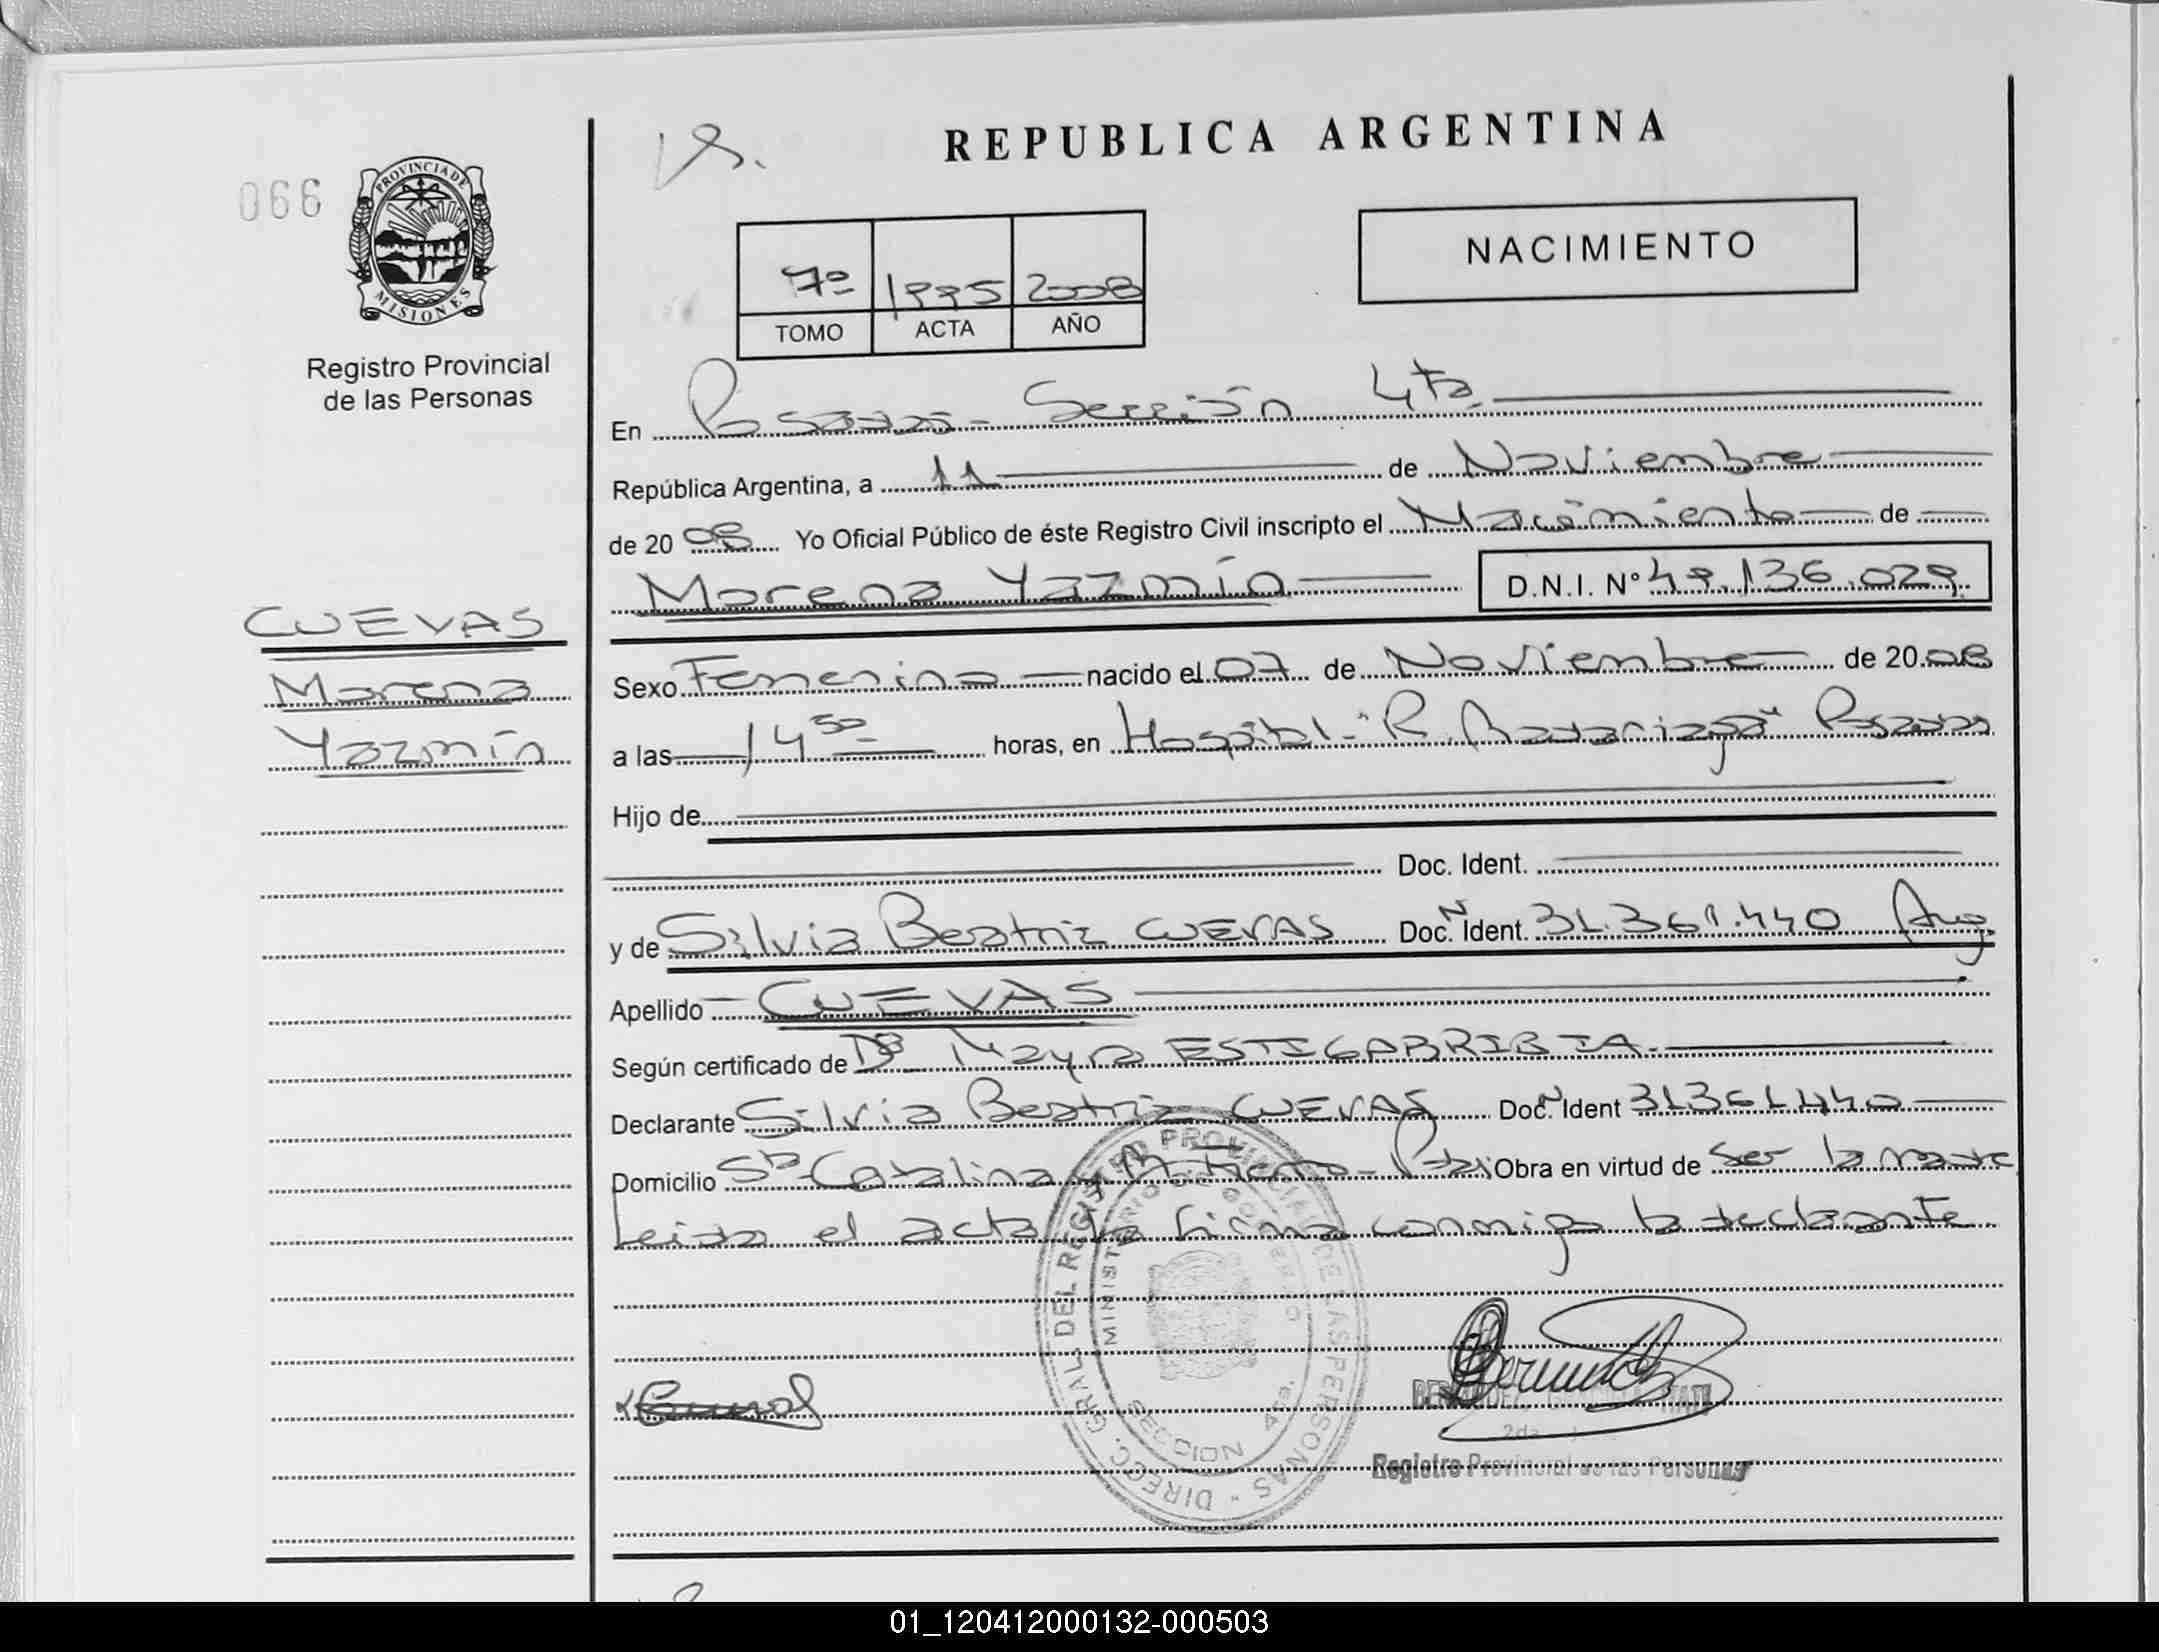 REPUBLICA ARGENTINA
066
PROVINCIA DE
MISIONES
Registro Provincial
de las Personas
NACIMIENTO
7º 1995 2008
TOMO ACTA AÑO
En Posadas - Sección 4ta.
República Argentina, a 11 de Noviembre
de 20 08 Yo Oficial Público de éste Registro Civil inscripto el Nacimiento de
Morena Yazmín D.N.I. Nº 49.136.029.
CUEVAS
Morena
Yazmín
Sexo Femenino nacido el 07 de Noviembre de 20 08
a las 14 50 horas, en Hospital "R. Madariaga" Posadas
Hijo de
Doc. Ident.
y de Silvia Beatriz CUEVAS Doc. Nº Ident. 31.361.440 Arg.
Apellido CUEVAS
Según certificado de Dra Mayra ESTIGARRIBIA.
Declarante Silvia Beatriz CUEVAS Doc. Nº Ident 31.361.440
Domicilio Sta Catalina Obra en virtud de Ser la madre
Leida el acta la firma conmigo la declarante
DIRECC. GRAL. DEL REGISTRO PROVINCIAL DE LAS PERSONAS
MINISTERIO DE GOBIERNO
SECCION 4ta.
Registro Provincial de las Personas
01_120412000132-000503